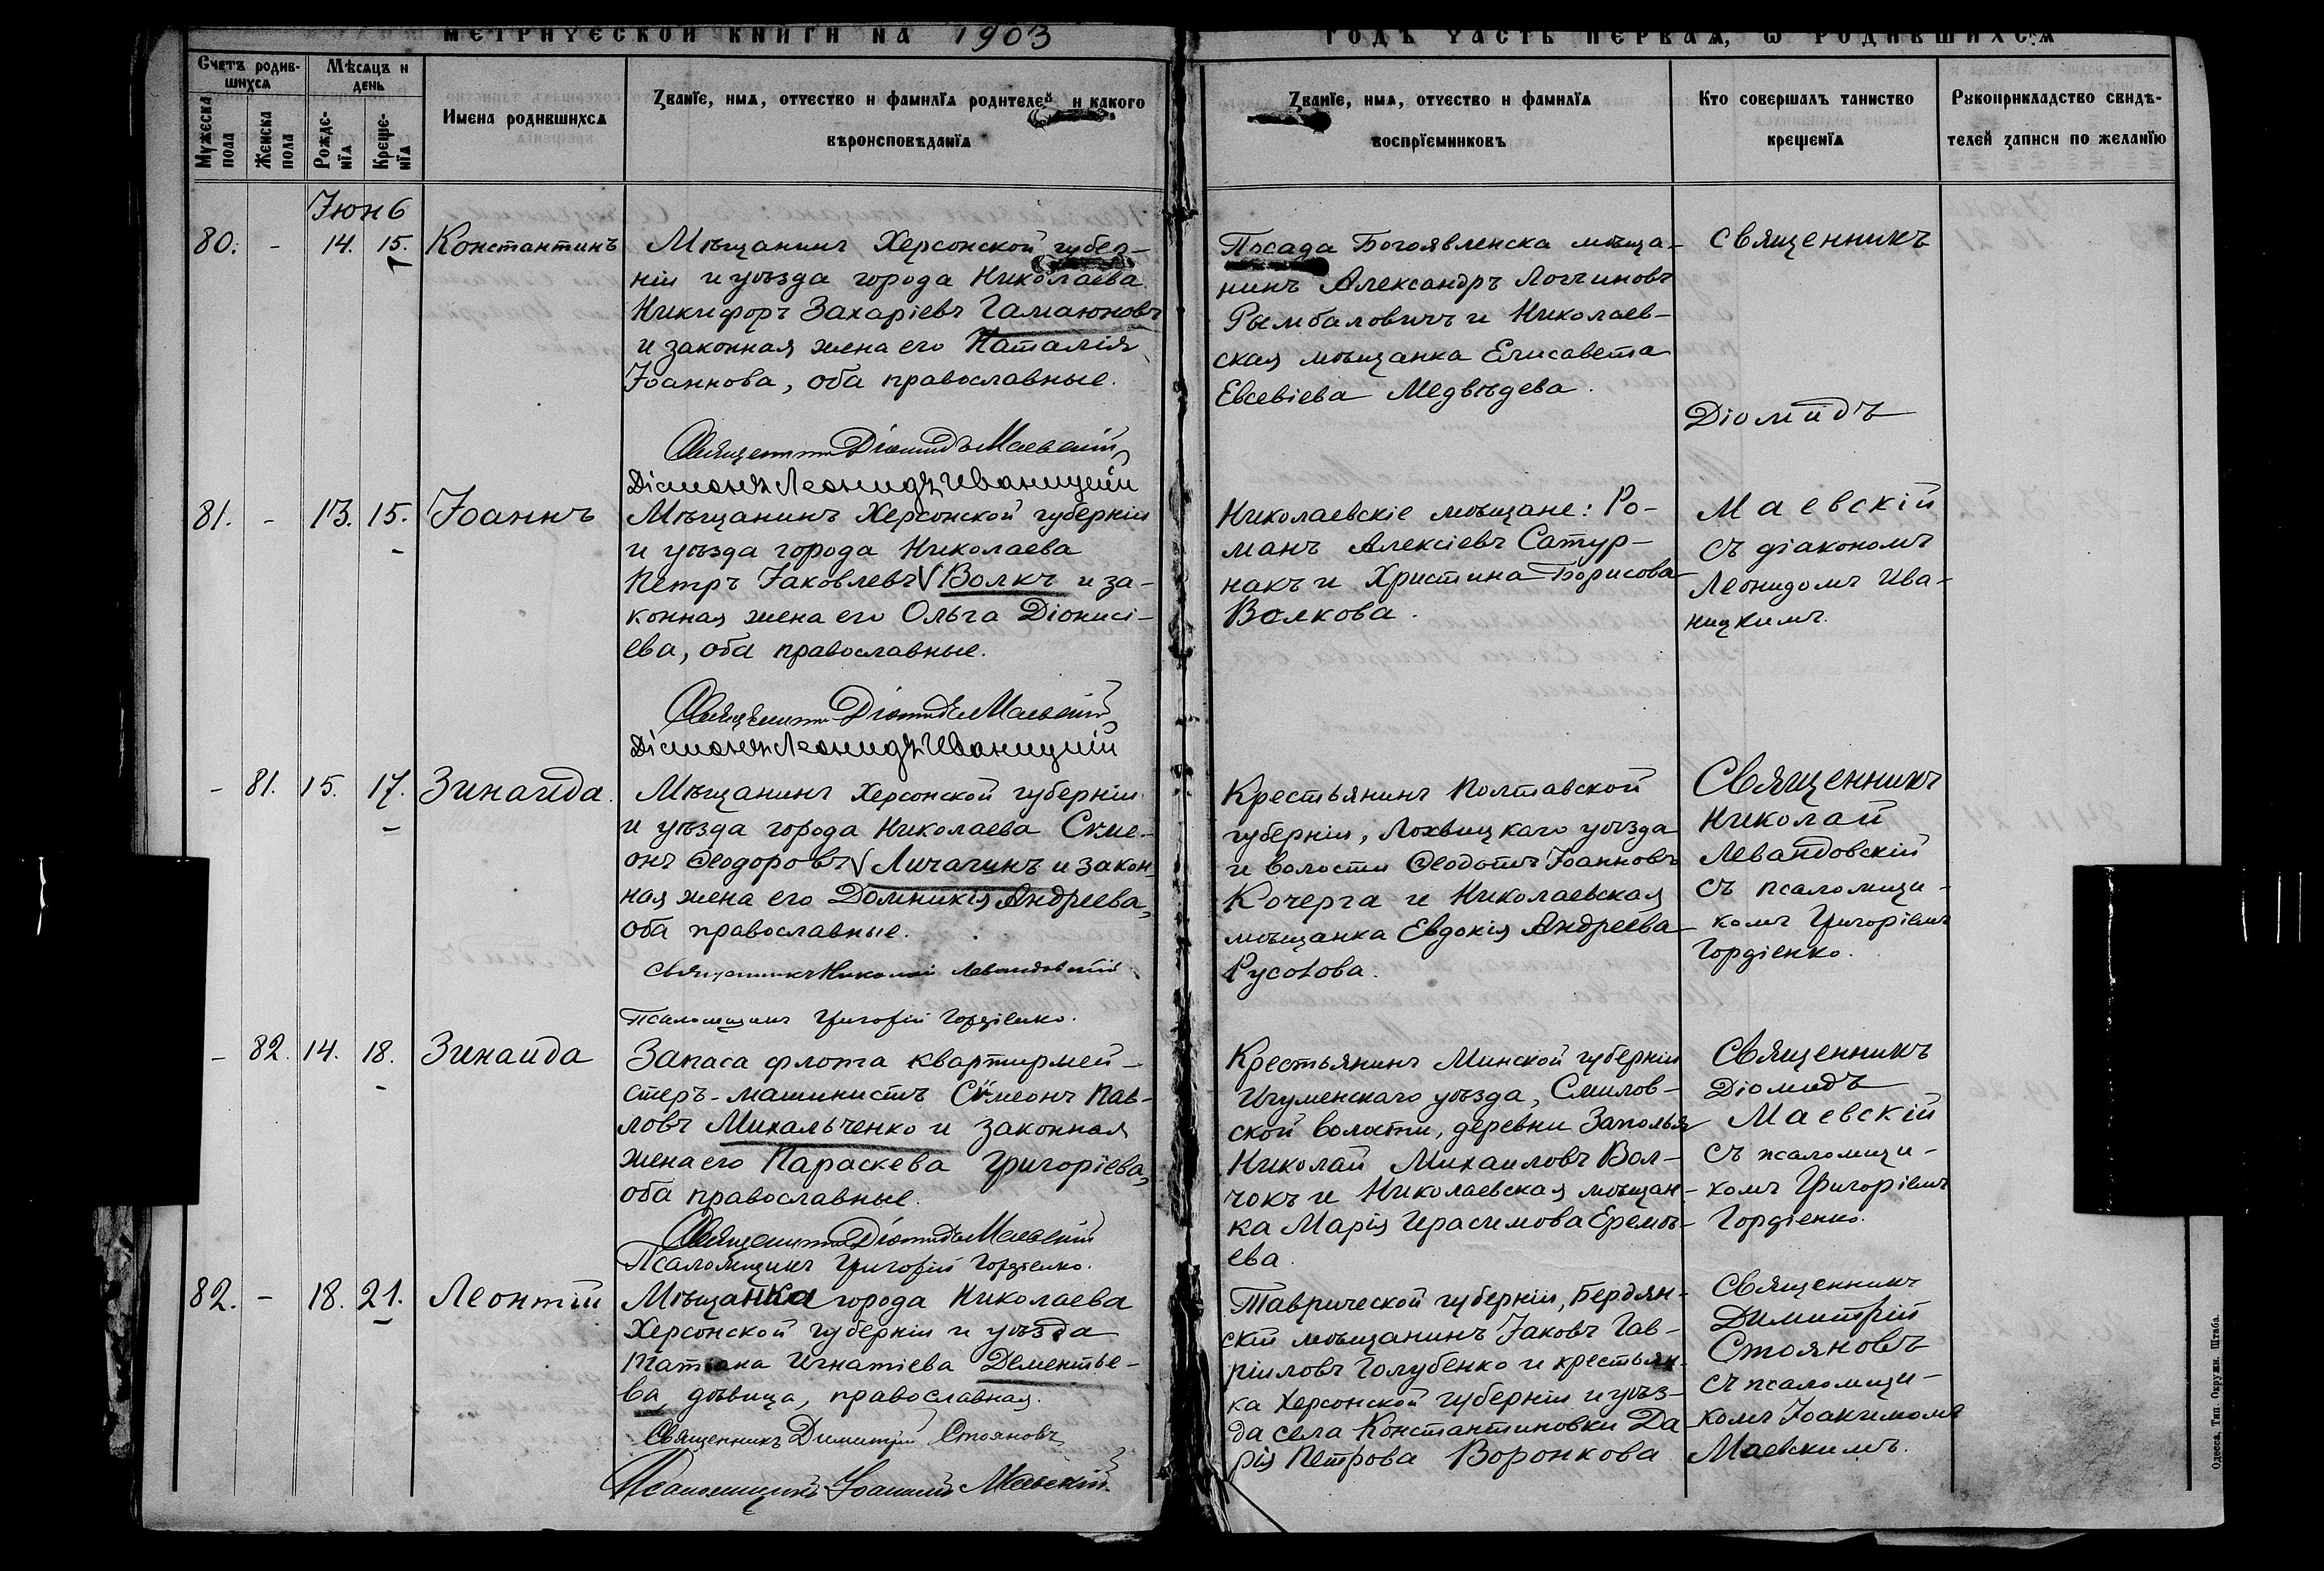 МЕТРИЧЕСКОЙ КНИГИ НА 1903
ГОДЪ ЧАСТЬ ПЕРВАЯ, Ѡ РОДИВШИХСѦ
Счетъ родив-
шихсѧ
Мѣсѧцъ и
день
Мужеска
пола
Женска
пола
Рожде-
нїѧ
Креще-
нїѧ
Имена родившихсѧ
Званїе, имѧ, отчество и фамилїѧ родителей и какого
вѣроисповѣданїѧ
Званїе, имѧ, отчество и фамилїѧ
воспрїемниковъ
Кто совершалъ таинство
крещенїѧ
Рукоприкладство свидѣ-
телей записи по желанїю
Іюнь
80. - 14. 15. Константинъ
Мѣщанинъ Херсонской губер-
ніи и уѣзда города Николаева
Никифоръ Захаріевъ Гамаюновъ
и законная жена его Наталія
Іоаннова, оба православные.
Священникъ Діомидъ Маевскій
Діаконъ Леонидъ Иваницкій
Посада Богоявленска мѣща-
нинъ Александръ Логгиновъ
Рымбаловичъ и Николаев-
ская мѣщанка Елисавета
Евсевіева Медвѣдева.
Священникъ
Діомидъ
81. - 13. 15. Іоаннъ
Мѣщанинъ Херсонской губерніи
и уѣзда города Николаева
Петръ Іаковлевъ Волкъ и за-
конная жена его Ольга Діонисі-
ева, оба православные.
Священникъ Діомидъ Маевскій
Діаконъ Леонидъ Иваницкій
Николаевскіе мѣщане: Ро-
манъ Алексіевъ Сатур-
накъ и Христина Борисова
Волкова.
Маевскій
съ діакономъ
Леонидомъ Ива-
ницкимъ.
- 81. 15. 17. Зинаида.
Мѣщанинъ Херсонской губерніи
и уѣзда города Николаева Симе-
онъ Ѳеодоровъ Личагинъ и закон-
ная жена его Домникія Андреева,
оба православные.
Священникъ Николай Левандовскій
Псаломщикъ Григорій Гордіенко.
Крестьянинъ Полтавской
губерніи, Лохвицкаго уѣзда
и волости Ѳеодотъ Іоанновъ
Кочерга и Николаевская
мѣщанка Евдокія Андреева
Русотова.
Священникъ
Николай
Левандовскій
съ псаломщи-
комъ Григоріемъ
Гордіенко.
- 82. 14. 18. Зинаида
Запаса флота квартирмей-
стеръ-машинистъ Сѵмеонъ Пав-
ловъ Михальченко и законная
жена его Параскева Григоріева,
оба православные.
Священникъ Діомидъ Маевскій
Псаломщикъ Григорій Гордіенко.
Крестьянинъ Минской губерніи
Игуменскаго уѣзда, Смилов-
ской волости, деревни Заполья
Николай Михаиловъ Вол-
чокъ и Николаевская мѣщан-
ка Марія Герасимова Еремѣ-
ева.
Священникъ
Діомидъ
Маевскій
съ псаломщи-
комъ Григоріемъ
Гордіенко.
82. - 18. 21. Леонтій
Мѣщанка города Николаева
Херсонской губерніи и уѣзда
Татіана Игнатіева Дементье-
ва, дѣвица, православная.
Священникъ Димитрій Стояновъ
Псаломщикъ Іоакимъ Маевскій
Таврической губерніи, Бердян-
скій мѣщанинъ Іаковъ Гав-
ріиловъ Голубенко и крестьян-
ка Херсонской губерніи и уѣз-
да села Константиновки Да-
рія Петрова Воронкова
Священникъ
Димитрій
Стояновъ
съ псаломщи-
комъ Іоакимомъ
Маевскимъ.
Одесса, Тип. Окружн. Штаба.